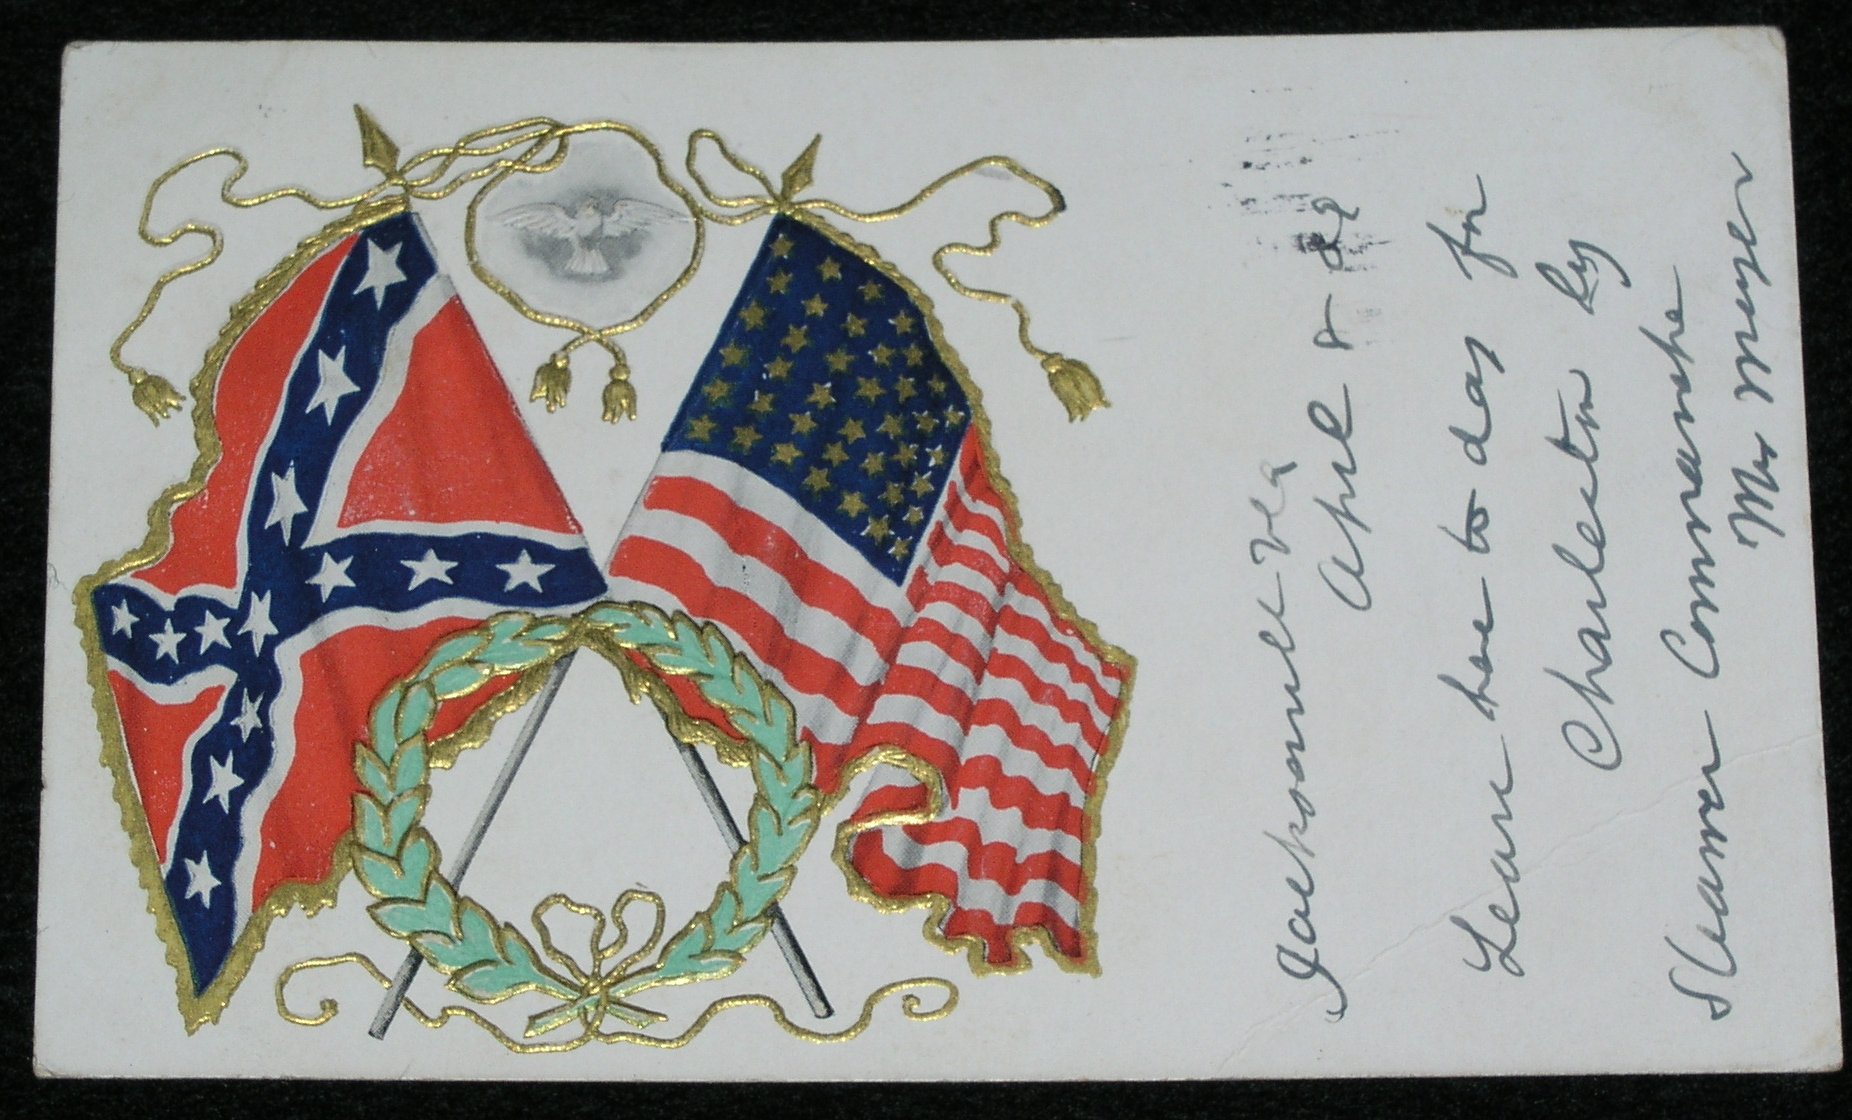 Jacksonville Vea
April 8 - 08
Leave hear to day for
Charlestn by
Steamer Commanshe
Mrs Moyer